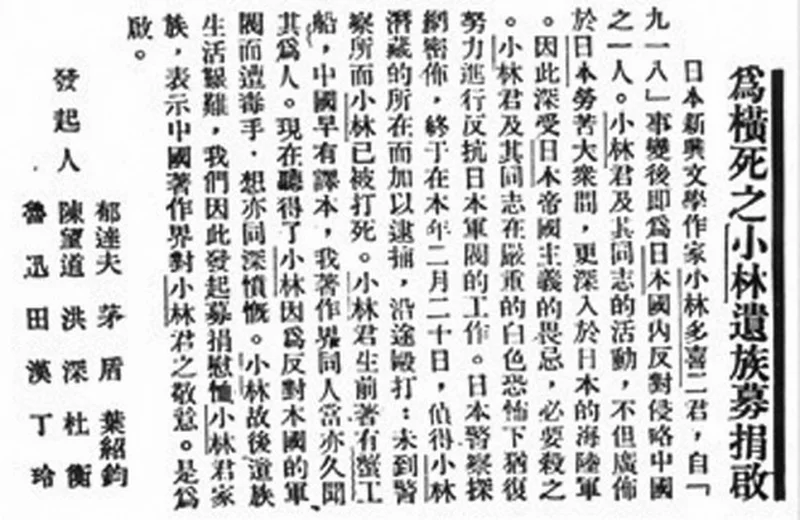 爲橫死之小林遺族募捐啟
日本新興文學作家小林多喜二君，自「
九一八」事變後即爲日本國內反對侵略中國
之一人。小林君及其同志的活動，不但廣佈
於日本勞苦大衆間，更深入於日本的海陸軍
。因此深受日本帝國主義的畏忌，必要殺之
。小林君及其同志在嚴重的白色恐怖下猶復
努力進行反抗日本軍閥的工作。日本警察探
網密佈，終于在本年二月二十日，偵得小林
潛藏的所在而加以逮捕，沿途毆打：未到警
察所而小林已被打死。小林君生前著有蟹工
船，中國早有譯本，我著作界同人當亦久聞
其爲人。現在聽得了小林因爲反對本國的軍
閥而遭毒手，想亦同深憤慨。小林故後遺族
生活艱難，我們因此發起募捐慰恤小林君家
族，表示中國著作界對小林君之敬意。是爲
啟。
發起人
郁達夫 茅盾 葉紹鈞
陳望道 洪深 杜衡
魯迅 田漢 丁玲